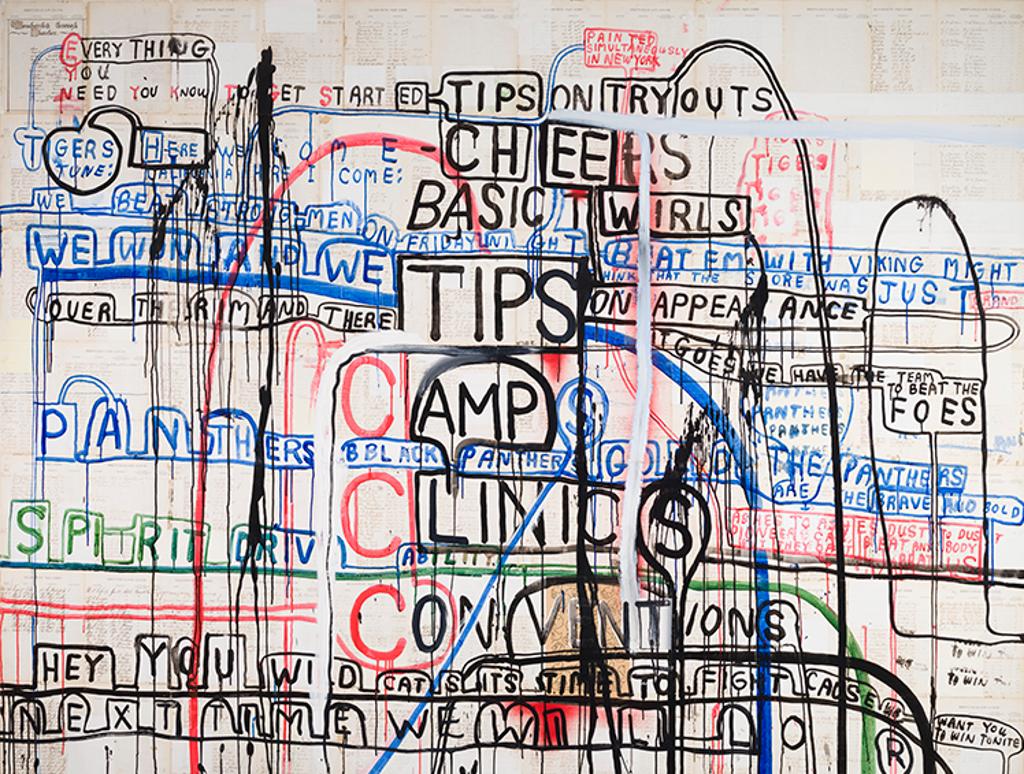 EVERY THING
YOU
NEED YOU KNOW TO GET STARTED TIPS ON TRY OUTS
PAINTED
SIMULTANEOUSLY
IN NEW YORK
TIGERS
TUNE:
HERE WE COME - CHEERS
CALIFORNIA HERE I COME:
TIGERS
WE BEAT STRONG MEN ON FRIDAY NIGHT
BASIC TWIRLS
WE WIN AND WE BEAT EM WITH VIKING MIGHT
THINK THAT THE SCORE WAS JUST
TIPS ON APPEARANCE
OVER THE RIM AND THERE IT GOES WE HAVE THE TEAM
TO BEAT THE
FOES
CAMPS
PANTHERS
PANTHERS
PANTHERS
PANTHERS B BLACK PANTHERS GOLD THE PANTHERS
ARE THE BRAVE AND BOLD
CLINICS
SPIRIT DRIV
ABILITY
ASHES TO ASHES DUST TO DUST
CONVENTIONS
HEY YOU WILD CATS ITS TIME TO FIGHT CAUSE
NEXT TIME WE WILL DO
R
TO WIN
TO WIN
WANT YOU
TO WIN TONITE